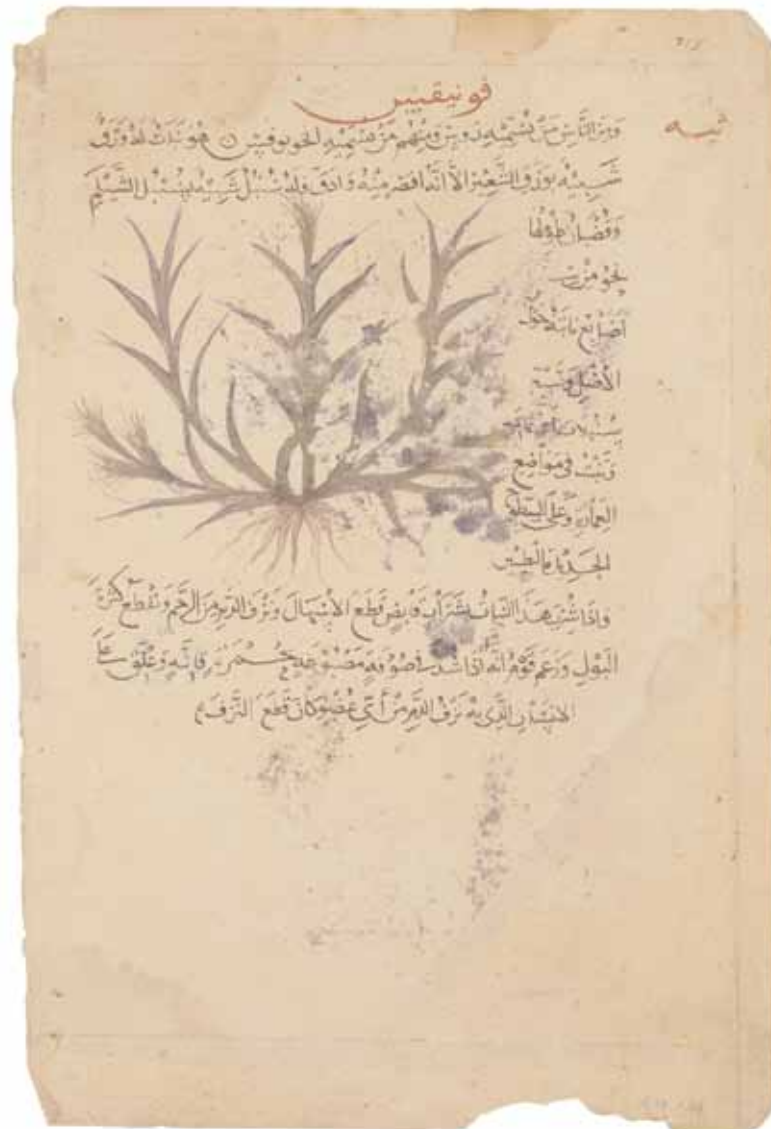 فونيقيس
ومن الناس من يسميه روس ومنهم من يسميه الحونوفس ن هو نبات له ورق
شبيه بورق الشعير الا انه اقصر منه وادق وله سنبل شبيه بسنبل الشيلم
وقضبان طولها
نحو من ست
اصابع نابتة حول
الاصل وتسعة
سنبلات او ثمانية
وتنبت في مواضع
العمارة وعلى السطوح
الجديدة بالطين
واذا شرب هذا النبات بشراب قابض قطع الاسهال ونزف الدم من الرحم ونقطع كثرة
البول وزعم قوم انه اذا شد في صوفة مصبوغة حمرة قانية وعلق على
الانسان الذي به نزف الدم من أي عضو كان قطع النزف